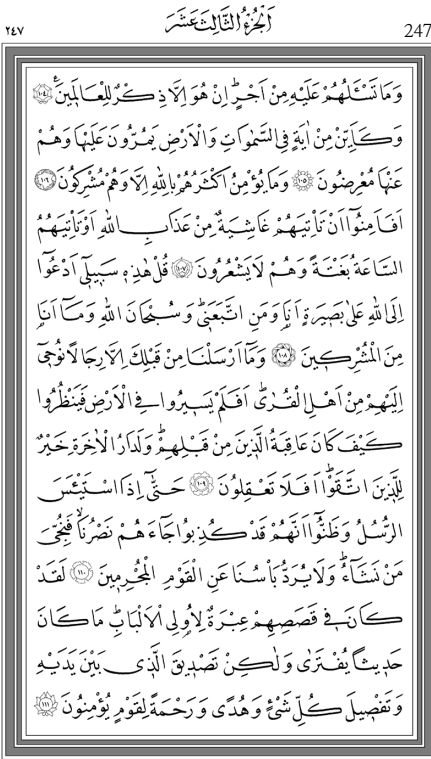 ٢٤٧ اَلْجُزْءُ الثَّالِثَ عَشَرَ 247
وَمَا تَسْـَٔلُهُمْ عَلَيْهِ مِنْ اَجْرٍۜ اِنْ هُوَ اِلَّا ذِكْرٌ لِلْعَالَمِينَ۟ ﴿١٠٤﴾
وَكَاَيِّنْ مِنْ اٰيَةٍ فِي السَّمٰوَاتِ وَالْاَرْضِ يَمُرُّونَ عَلَيْهَا وَهُمْ
عَنْهَا مُعْرِضُونَ ﴿١٠٥﴾ وَمَا يُؤْمِنُ اَكْثَرُهُمْ بِاللّٰهِ اِلَّا وَهُمْ مُشْرِكُونَ ﴿١٠٦﴾
اَفَاَمِنُٓوا اَنْ تَأْتِيَهُمْ غَاشِيَةٌ مِنْ عَذَابِ اللّٰهِ اَوْ تَأْتِيَهُمُ
السَّاعَةُ بَغْتَةً وَهُمْ لَا يَشْعُرُونَ ﴿١٠٧﴾ قُلْ هٰذِه۪ سَب۪يل۪ٓي اَدْعُٓوا
اِلَى اللّٰهِ عَلٰى بَص۪يرَةٍ اَنَا۬ وَمَنِ اتَّبَعَن۪يۜ وَسُبْحَانَ اللّٰهِ وَمَٓا اَنَا۬
مِنَ الْمُشْرِك۪ينَ ﴿١٠٨﴾ وَمَٓا اَرْسَلْنَا مِنْ قَبْلِكَ اِلَّا رِجَالًا نُوح۪ٓي
اِلَيْهِمْ مِنْ اَهْلِ الْقُرٰىۜ اَفَلَمْ يَس۪يرُوا فِي الْاَرْضِ فَيَنْظُرُوا
كَيْفَ كَانَ عَاقِبَةُ الَّذ۪ينَ مِنْ قَبْلِهِمْۜ وَلَدَارُ الْاٰخِرَةِ خَيْرٌ
لِلَّذ۪ينَ اتَّقَوْاۜ اَفَلَا تَعْقِلُونَ ﴿١٠٩﴾ حَتّٰٓى اِذَا اسْتَيْـَٔسَ
الرُّسُلُ وَظَنُّٓوا اَنَّهُمْ قَدْ كُذِبُوا جَٓاءَهُمْ نَصْرُنَاۙ فَنُجِّيَ
مَنْ نَشَٓاءُۜ وَلَا يُرَدُّ بَأْسُنَا عَنِ الْقَوْمِ الْمُجْرِم۪ينَ ﴿١١٠﴾ لَقَدْ
كَانَ ف۪ي قَصَصِهِمْ عِبْرَةٌ لِاُو۬لِي الْاَلْبَابِۜ مَا كَانَ
حَد۪يثًا يُفْتَرٰى وَلٰكِنْ تَصْد۪يقَ الَّذ۪ي بَيْنَ يَدَيْهِ
وَتَفْص۪يلَ كُلِّ شَيْءٍ وَهُدًى وَرَحْمَةً لِقَوْمٍ يُؤْمِنُونَ ﴿١١١﴾